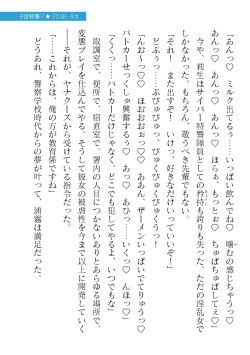 子宮特警V★STAR リオ
「あんっ♡　ミルク出てるぅ……いっぱい飲んでね♡　噛むの感じちゃうっ♡
あんっ♡　あんっ♡　あんっ♡　ほらぁ、もっとぉ♡　ちゅぱちゅぱしてぇ♡」
今や、莉生はサイバー特警隊員としての矜持も誇りも失った、ただの淫乱女で
しかなかった。もちろん、敬うべき先輩でもない。
「それ！　また出すぞ！　いけっ、好きなだけいっていいぞ！
どぷぅっ……ぷぴゅびゅっ、びゅくびゅくうっ！
「んお〜っ♡♡　ほおおおっ♡　ああん、ザーメンいっぱいでてりゅうっ♡
パトカーせっくしゅ興奮するぅっ♡　ああ、いくっ、いくっ♡　んほっっ♡」
「くっ、パトカーだけじゃなく、どこでも犯してやるよ、いつでもな！」
取調室で、便所で、宿直室で、署内の人目につかないありとあらゆる場所で、
変態プレイを仕込んでやる。そうして彼女の被虐性を今まで以上に開発していく
――それが、ヤナクーズから受けている指令だった。
「……これからは、俺の方が教育係ですね」
どうあれ、警察学校時代からの夢が叶って、浦霧は満足だった。